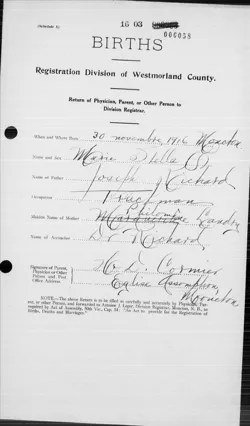 (Schedule B)
16 03
000058
BIRTHS
Registration Division of Westmorland County.
Return of Physician, Parent, or Other Person to
Division Registrar.
When and Where Born 30 novembre 1916 Moncton
Name and Sex Marie Stella
Name of Father Joseph J Richard
Occupation Truckman
Philomene
Maiden Name of Mother Marguerite Landry
Name of Accoucher Dr Richard
Signature of Parent, Physician or Other Person and Post Office Address
H. D. Cormier
Eglise Assomption
Moncton
NOTE.—The above Return is to be filled in carefully and accurately by Physician, Parent, or other Person, and forwarded to Antoine J. Leger, Division Registrar, Moncton, N. B., as required by Act of Assembly, 50th Vic., Cap. 5. "An Act to provide for the Registration of Births, Deaths and Marriages."